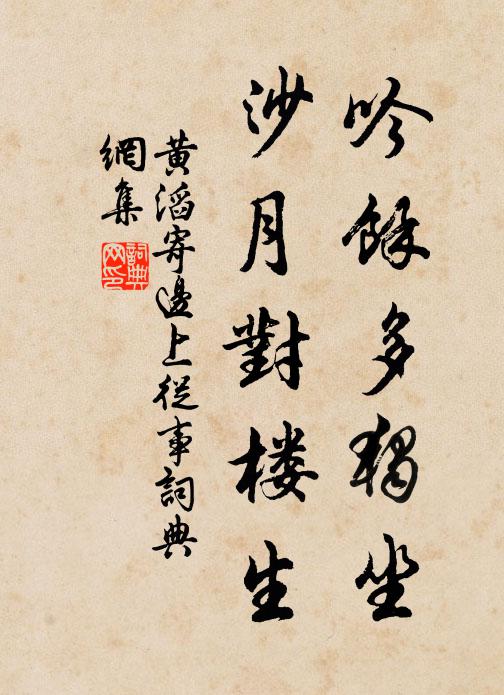 吟餘多獨坐
沙月對楼生
黄滔寄邊上從事詞典
網集
詞典網印